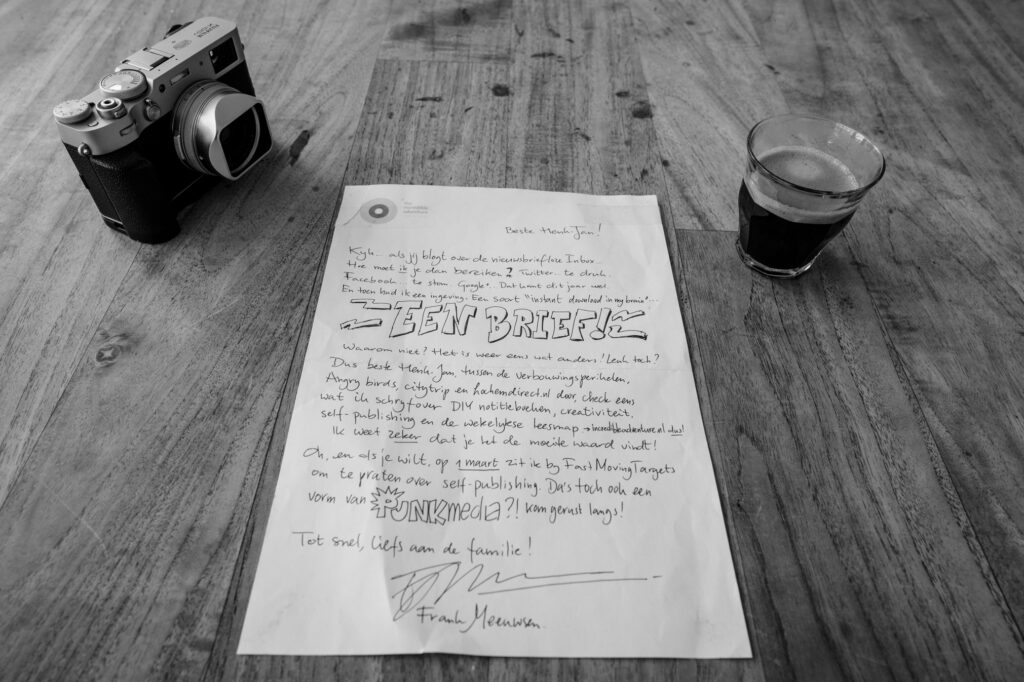 the
incredible
adventure
Beste Henk-Jan!
Kijk... als jij blogt over de nieuwsbriefloze Inbox...
Hoe moet ik je dan bereiken? Twitter.. te druk.
Facebook... te stom. Google+.. Dat komt dit jaar wel.
En toen had ik een ingeving. Een soort "instant download in my brain"...
EEN BRIEF!
Waarom niet? Het is weer eens wat anders! Leuk toch?
Dus beste Henk-Jan, tussen de verbouwingsperikelen,
Angry birds, citytrip en hochemdirect.nl door, check eens
wat ik schrijf over DIY notitieboeken, creativiteit,
self-publishing en de wekelijkse leesmap → incredibleadventure.nl dus!
Ik weet zeker dat je het de moeite waard vindt!
Oh, en als je wilt, op 1 maart zit ik bij FastMovingTargets
om te praten over self-publishing. Da's toch ook een
vorm van PUNKmedia?! kom gerust langs!
Tot snel, liefs aan de familie!
Frank Meeuwsen.